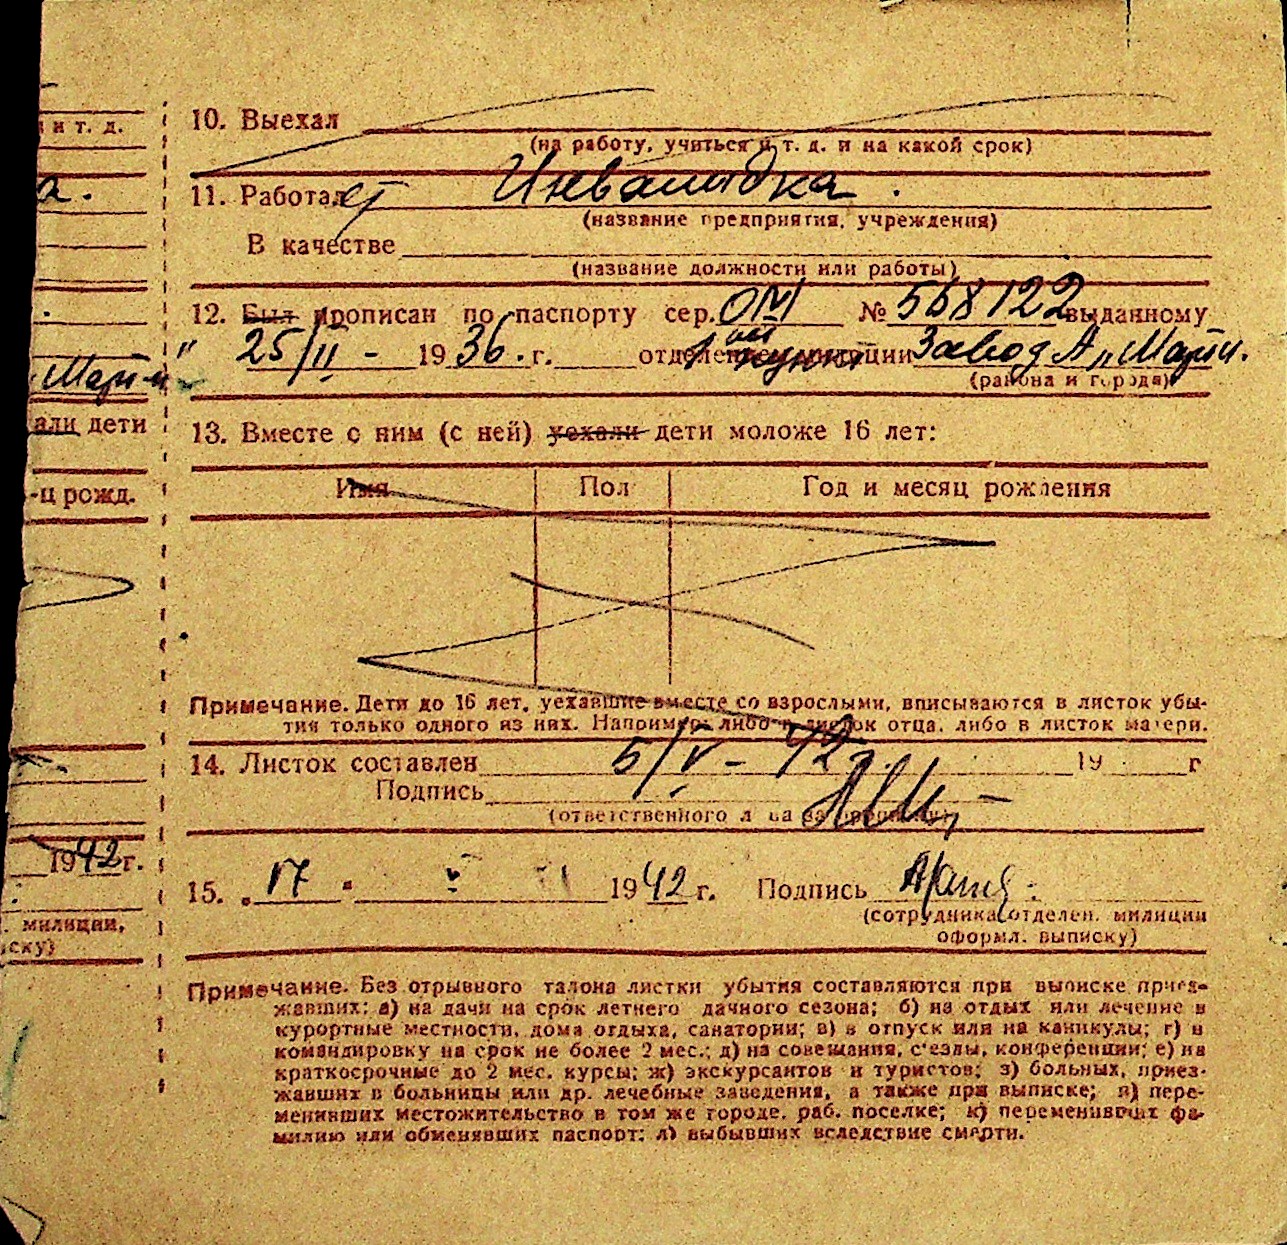 и т. д.
а.
Марти
али дети
-ц рожд.
1942 г.
. милиции,
ску)
10. Выехал
(на работу, учиться и т. д. и на какой срок)
11. Работает Инвалидка.
(название предприятия, учреждения)
В качестве
(название должности или работы)
12. Был прописан по паспорту сер. ОМ № 568122 выданному
" 25/II - 1936. г. отделением милиции Завод А. Марти.
(района и города)
13. Вместе с ним (с ней) уехали дети моложе 16 лет:
Имя Пол Год и месяц рождения
Примечание. Дети до 16 лет, уехавшие вместе со взрослыми, вписываются в листок убы-
тия только одного из них. Например: либо в листок отца, либо в листок матери.
14. Листок составлен 5/V - 42 г. 19 г
Подпись
(ответственного л ца за прописку)
15. „17 " V 1942 г. Подпись
(сотрудника отделен. милиции
оформл. выписку)
Примечание. Без отрывного талона листки убытия составляются при выписке приез-
жавших: а) на дачи на срок летнего дачного сезона; б) на отдых или лечение в
курортные местности, дома отдыха, санатории; в) в отпуск или на каникулы; г) в
командировку на срок не более 2 мес.; д) на совещания, с'езды, конференции; е) на
краткосрочные до 2 мес. курсы; ж) экскурсантов и туристов; з) больных, приез-
жавших в больницы или др. лечебные заведения, а также при выписке; и) пере-
менивших местожительство в том же городе, раб. поселке; к) переменивших фа-
милию или обменявших паспорт; л) выбывших вследствие смерти.